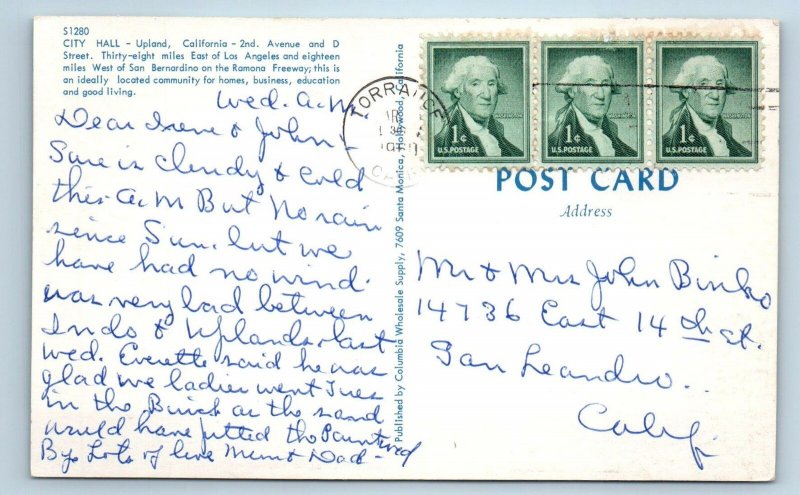 S1280
CITY HALL - Upland, California - 2nd. Avenue and D
Street. Thirty-eight miles East of Los Angeles and eighteen
miles West of San Bernardino on the Ramona Freeway; this is
an ideally located community for homes, business, education
and good living.
Wed. A.M.
Dear Irene & John -
Sure is cloudy & cold
this A.M But no rain
since Sun. but we
have had no wind.
was very bad between
Indo & Uplands last
Wed. Everette said he was
glad we ladies went Tues
in the Buick as the sand
would have pitted the Pontiac
By. Lots of love Mom & Dad -
Published by Columbia Wholesale Supply, 7609 Santa Monica, Hollywood, California
TORRANCE
CALIF
1¢
U.S. POSTAGE
WASHINGTON
1¢
U.S. POSTAGE
WASHINGTON
1¢
U.S. POSTAGE
WASHINGTON
POST CARD
Address
Mr & Mrs John Binko
14736 East 14th st.
San Leandro..
Calif.